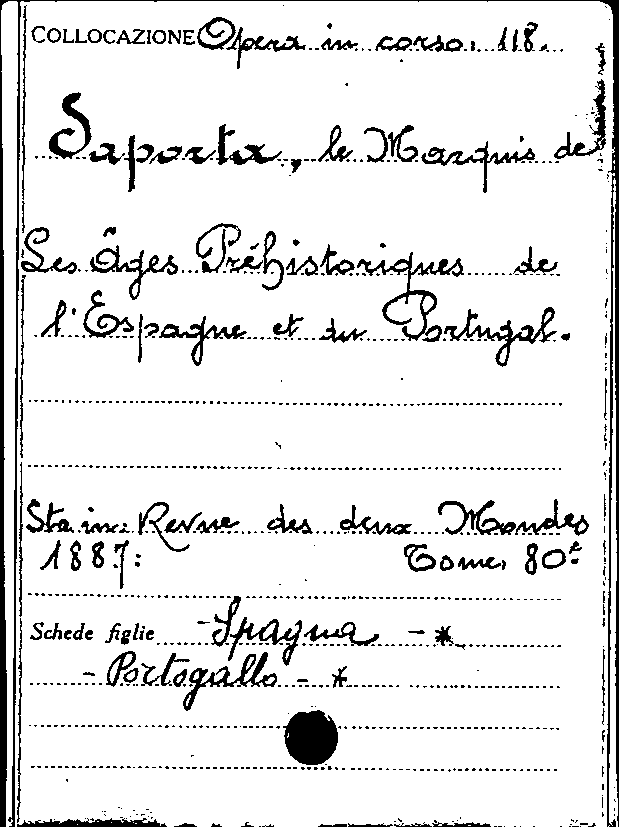 COLLOCAZIONE Opera in corso. 118.
Saporta, le Marquis de
Les Âges Préhistoriques de
l'Espagne et du Portugal.
Sta in: Revue des deux Mondes
1887: Tome. 80.e
Schede figlie - Spagna - *
- Portogallo - *